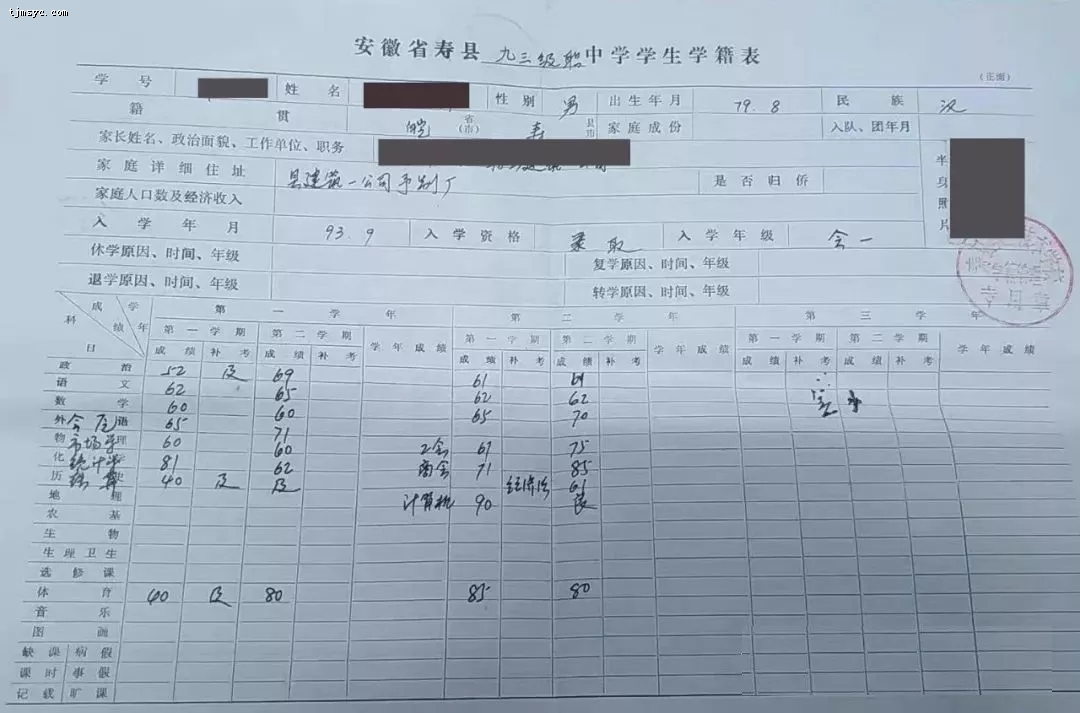 tjmsyc.com
安徽省寿县九三级职中学学生学籍表
(正面)
学号 姓名 性别 男 出生年月 79.8 民族 汉
籍贯 皖 省(市) 寿 县市 家庭成份 入队、团年月
家长姓名、政治面貌、工作单位、职务
半身照片
家庭详细住址 县建筑一公司予制厂 是否归侨
家庭人口数及经济收入
入学年月 93.9 入学资格 录取 入学年级 会一
休学原因、时间、年级 复学原因、时间、年级
退学原因、时间、年级 转学原因、时间、年级
专用章
科目 成绩 学年 第一学年 第二学年 第三学年
第一学期 第二学期 学年成绩 第一学期 第二学期 学年成绩 第一学期 第二学期 学年成绩
成绩 补考 成绩 补考 成绩 补考 成绩 补考 成绩 补考 成绩 补考
政治 52 及 69 61 61
语文 62 65 62 62
数学 60 60 65 70 实习
外语 65 71
物理 市场学 60 60 工会 67 75
化学 统计学 81 62 商会 71 85
历史 珠算 40 及 及 经济法 61
地理 计算机 90 良
农基
生物
生理卫生
选修课
体育 40 及 80 85 80
音乐
图画
缺课 病假
课时 事假
记载 旷课